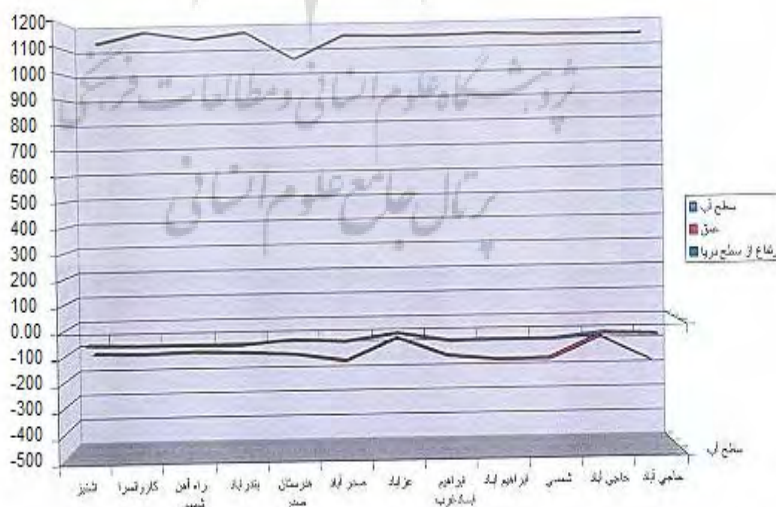 1200
1100
1000
900
800
700
600
500
400
300
200
100
0.00
-100
-200
-300
-400
-500
پژوهشگاه علوم انسانی و مطالعات فرهنگی
پرتال جامع علوم انسانی
سطح آب
عمق
ارتفاع از سطح دریا
سطح آب
اشنیز
کاروانسرا
راه آهن
هنرستان
صدر
بندرآباد
صدرآباد
عزآباد
ابراهیم
ابراهیم آباد
شمسی
حاجی آباد
حاجی آباد